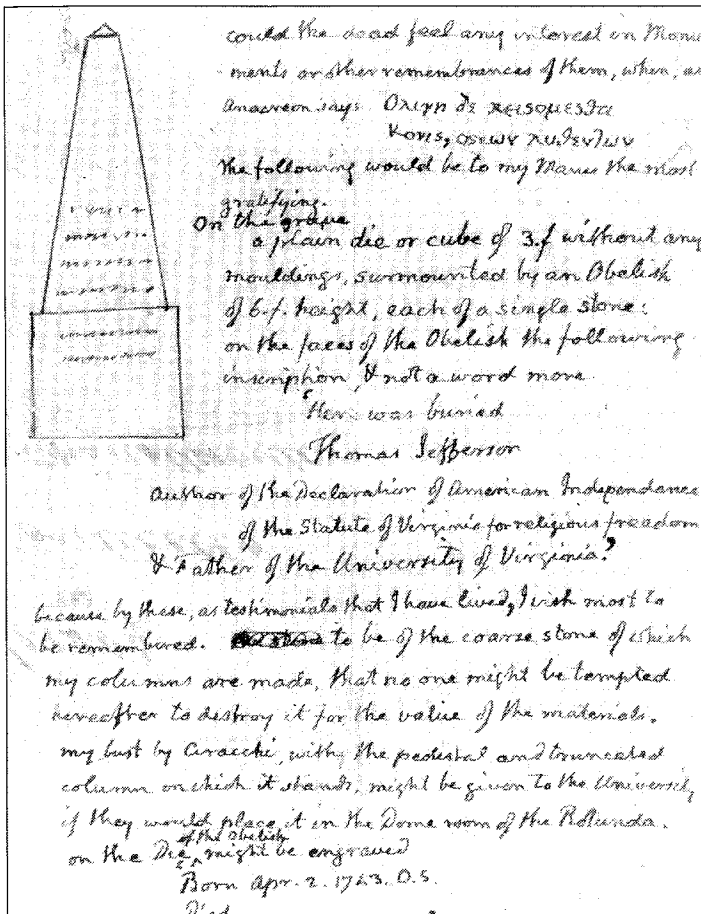 could the dead feel any interest in Monu
ments or other remembrances of them, when, as
Anacreon says: Ολιγη δε κεισομεσθα
Κονις, οστεων λυθεντων
the following would be to my Manes the most
gratifying.
On the grave
a plain die or cube of 3.f without any
mouldings, surmounted by an Obelisk
of 6.f. height, each of a single stone:
on the faces of the Obelisk the following
inscription, & not a word more
'Here was buried
Thomas Jefferson
Author of the Declaration of American Independance
of the Statute of Virginia for religious freedom
& Father of the University of Virginia.'
because by these, as testimonials that I have lived, I wish most to
be remembered. to be of the coarse stone of which
my columns are made, that no one might be tempted
hereafter to destroy it for the value of the materials.
my bust by Ciracchi, with the pedestal and truncated
column on which it stands, might be given to the University
if they would place it in the Dome room of the Rotunda.
of the Obelisk
on the Die might be engraved
Born Apr. 2. 1743. O.S.
Died